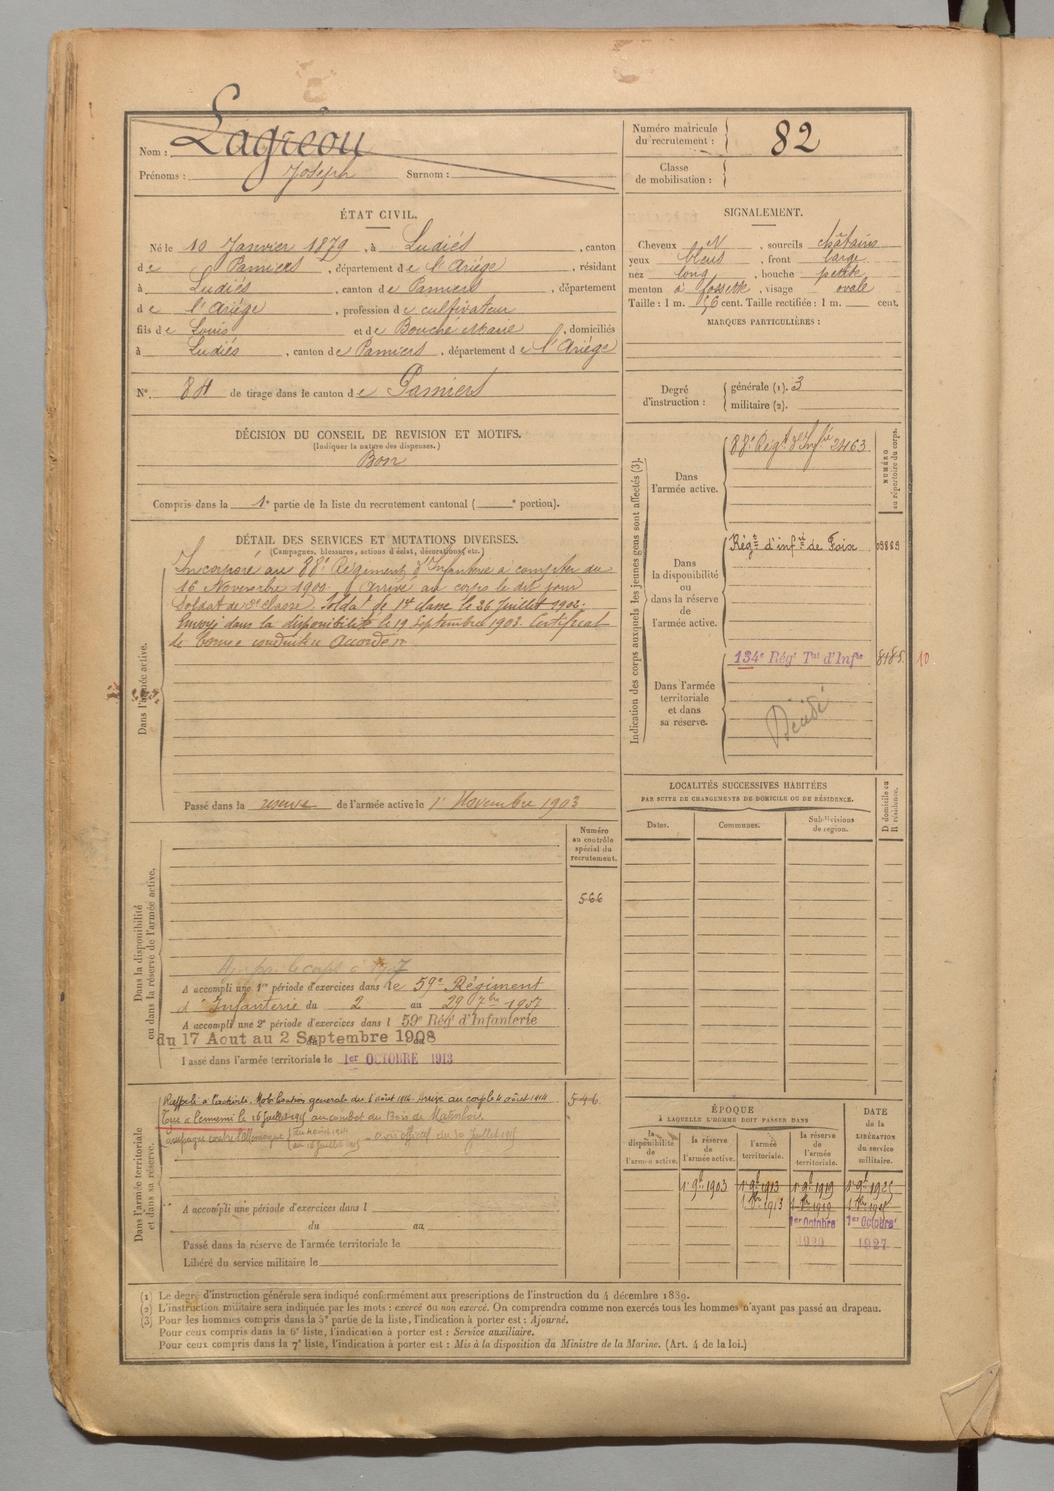 Nom : Lagréou
Prénoms : Joseph Surnom :
Numéro matricule du recrutement : 82
Classe de mobilisation :
ÉTAT CIVIL.
Né le 10 Janvier 1879, à Ludiés, canton
de Pamiers, département de l'Ariège, résidant
à Ludiés, canton de Pamiers, département
de l'Ariège, profession de cultivateur
fils de Louis et de Bouche Marie, domiciliés
à Ludiés, canton de Pamiers, département de l'Ariège
N° 84 de tirage dans le canton de Pamiers
SIGNALEMENT.
Cheveux N, sourcils châtains
yeux bleus, front large
nez long, bouche petite
menton à fossette, visage ovale
Taille : 1 m. 56 cent. Taille rectifiée : 1 m. cent.
MARQUES PARTICULIÈRES :
Degré d'instruction : générale (1). 3
militaire (2).
DÉCISION DU CONSEIL DE REVISION ET MOTIFS.
(Indiquer la nature des dispenses.)
Bon
Compris dans la 1e partie de la liste du recrutement cantonal ( e portion).
DÉTAIL DES SERVICES ET MUTATIONS DIVERSES.
(Campagnes, blessures, actions d'éclat, décorations, etc.)
Dans l'armée active.
Incorporé au 88e Régiment d'Infanterie à compter du
16 Novembre 1900. Arrivé au corps le dit jour
Soldat de 2e classe. Soldat de 1re classe le 26 Juillet 1902.
Envoyé dans la disponibilité le 19 Septembre 1903. Certificat
de bonne conduite Accordé
Passé dans la réserve de l'armée active le 1er Novembre 1903
Indication des corps auxquels les jeunes gens sont affectés (3).
NUMÉRO au répertoire du corps.
Dans l'armée active.
88e Régt d'Infie 2463
Dans la disponibilité ou dans la réserve de l'armée active.
Régt d'infie de Foix 03869
Dans l'armée territoriale et dans sa réserve.
134e Régt Tal d'Infie 8185 10
Décédé
LOCALITÉS SUCCESSIVES HABITÉES
PAR SUITE DE CHANGEMENTS DE DOMICILE OU DE RÉSIDENCE.
D domicile ou R résidence.
Dates. Communes. Subdivisions de région.
Dans la disponibilité ou dans la réserve de l'armée active.
Numéro au contrôle spécial du recrutement.
566
A accompli une 1re période d'exercices dans le 59e Régiment
d'Infanterie du 2 au 29 7bre 1907
A accompli une 2e période d'exercices dans l 59e Rég d'Infanterie
du 17 Aout au 2 Septembre 1908
Passé dans l'armée territoriale le 1er OCTOBRE 1913
Dans l'armée territoriale et dans sa réserve.
Rappelé à l'activité. Mobilisation générale du 1 Août 1914. Arrivé au corps le 4 août 1914
546
Tué à l'ennemi le 16 Juillet 1915 au combat du Bois de
Campagne contre l'Allemagne du 4 Août 1914 au 16 Juillet 1915 avis officiel du 30 Juillet 1915
A accompli une période d'exercices dans l
du au
Passé dans la réserve de l'armée territoriale le
Libéré du service militaire le
ÉPOQUE
À LAQUELLE L'HOMME DOIT PASSER DANS
DATE DE LA LIBÉRATION du service militaire.
la disponibilité de l'armée active. la réserve de l'armée active. l'armée territoriale. la réserve de l'armée territoriale.
1er 9bre 1903 1er 9bre 1913 1er 9bre 1919 1er 9bre 1925
1er 8bre 1913 1er 8bre 1919
1er Octobre 1920 1er Octobre 1927
(1) Le degré d'instruction générale sera indiqué conformément aux prescriptions de l'instruction du 4 décembre 1889.
(2) L'instruction militaire sera indiquée par les mots : exercé ou non exercé. On comprendra comme non exercés tous les hommes n'ayant pas passé au drapeau.
(3) Pour les hommes compris dans la 5e partie de la liste, l'indication à porter est : Ajourné.
Pour ceux compris dans la 6e liste, l'indication à porter est : Service auxiliaire.
Pour ceux compris dans la 7e liste, l'indication à porter est : Mis à la disposition du Ministre de la Marine. (Art. 4 de la loi.)